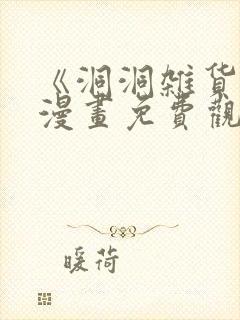 《洞洞雑货
漫畫免費觀
暖荷